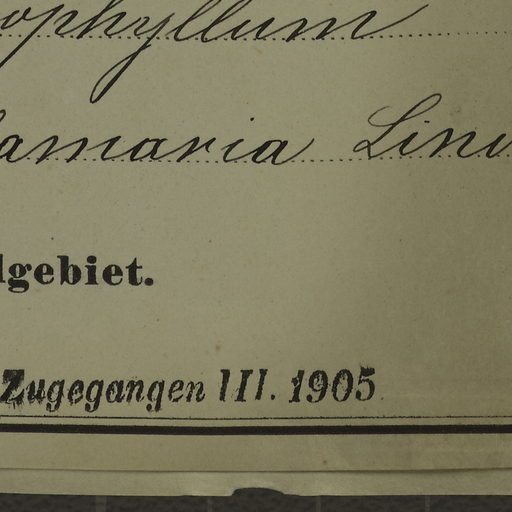 ophyllum
amaria Lin
gebiet.
Zugegangen III. 1905